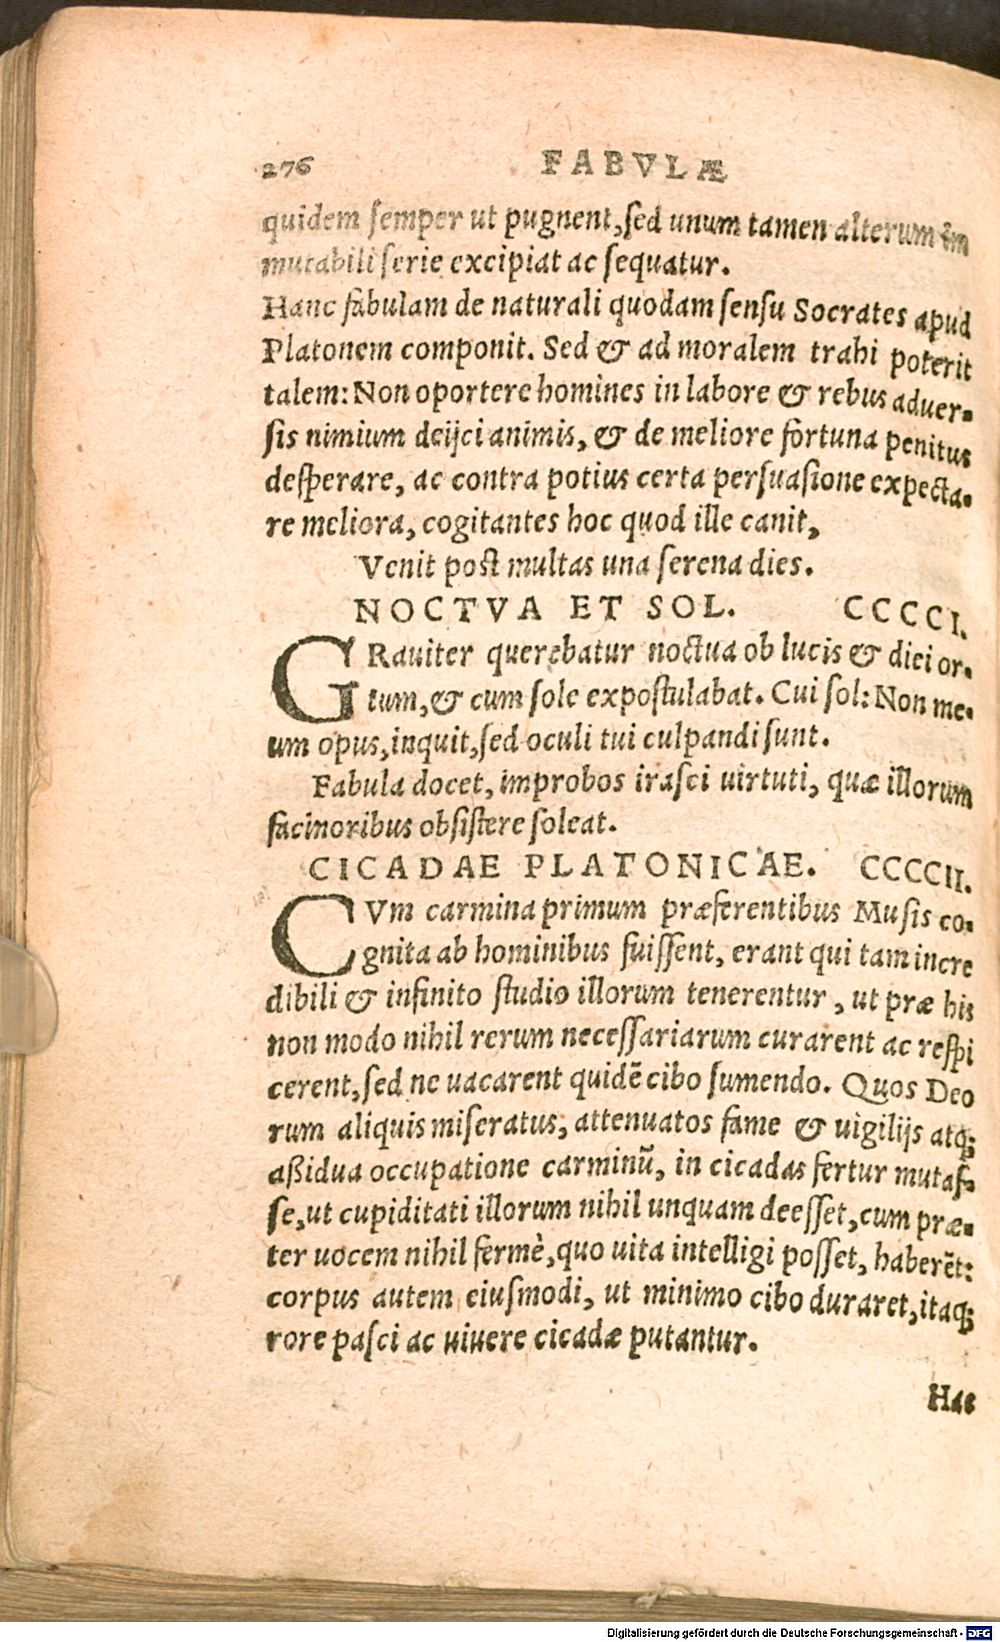 276 FABVLÆ
quidem semper ut pugnent, sed unum tamen alterum im
mutabili serie excipiat ac sequatur.
Hanc fabulam de naturali quodam sensu Socrates apud
Platonem componit. Sed & ad moralem trahi poterit
talem: Non oportere homines in labore & rebus aduer-
sis nimium deijci animis, & de meliore fortuna penitus
desperare, ac contra potius certa persuasione expecta-
re meliora, cogitantes hoc quod ille canit,
Venit post multas una serena dies.
NOCTVA ET SOL. CCCCI.
GRauiter querebatur noctua ob lucis & diei or-
tum, & cum sole expostulabat. Cui sol: Non me-
um opus, inquit, sed oculi tui culpandi sunt.
Fabula docet, improbos irasci uirtuti, quæ illorum
facinoribus obsistere soleat.
CICADAE PLATONICAE. CCCCII.
CVm carmina primum præferentibus Musis co-
gnita ab hominibus fuissent, erant qui tam incre
dibili & infinito studio illorum tenerentur, ut præ his
non modo nihil rerum necessariarum curarent ac respi
cerent, sed ne uacarent quidē cibo sumendo. Quos Deo
rum aliquis miseratus, attenuatos fame & uigilijs atq;
aßidua occupatione carminū, in cicadas fertur mutas-
se, ut cupiditati illorum nihil unquam deesset, cum præ-
ter uocem nihil fermè, quo uita intelligi posset, haberēt:
corpus autem eiusmodi, ut minimo cibo duraret, itaq;
rore pasci ac uiuere cicadæ putantur.
Hac
Digitalisierung gefördert durch die Deutsche Forschungsgemeinschaft - DFG